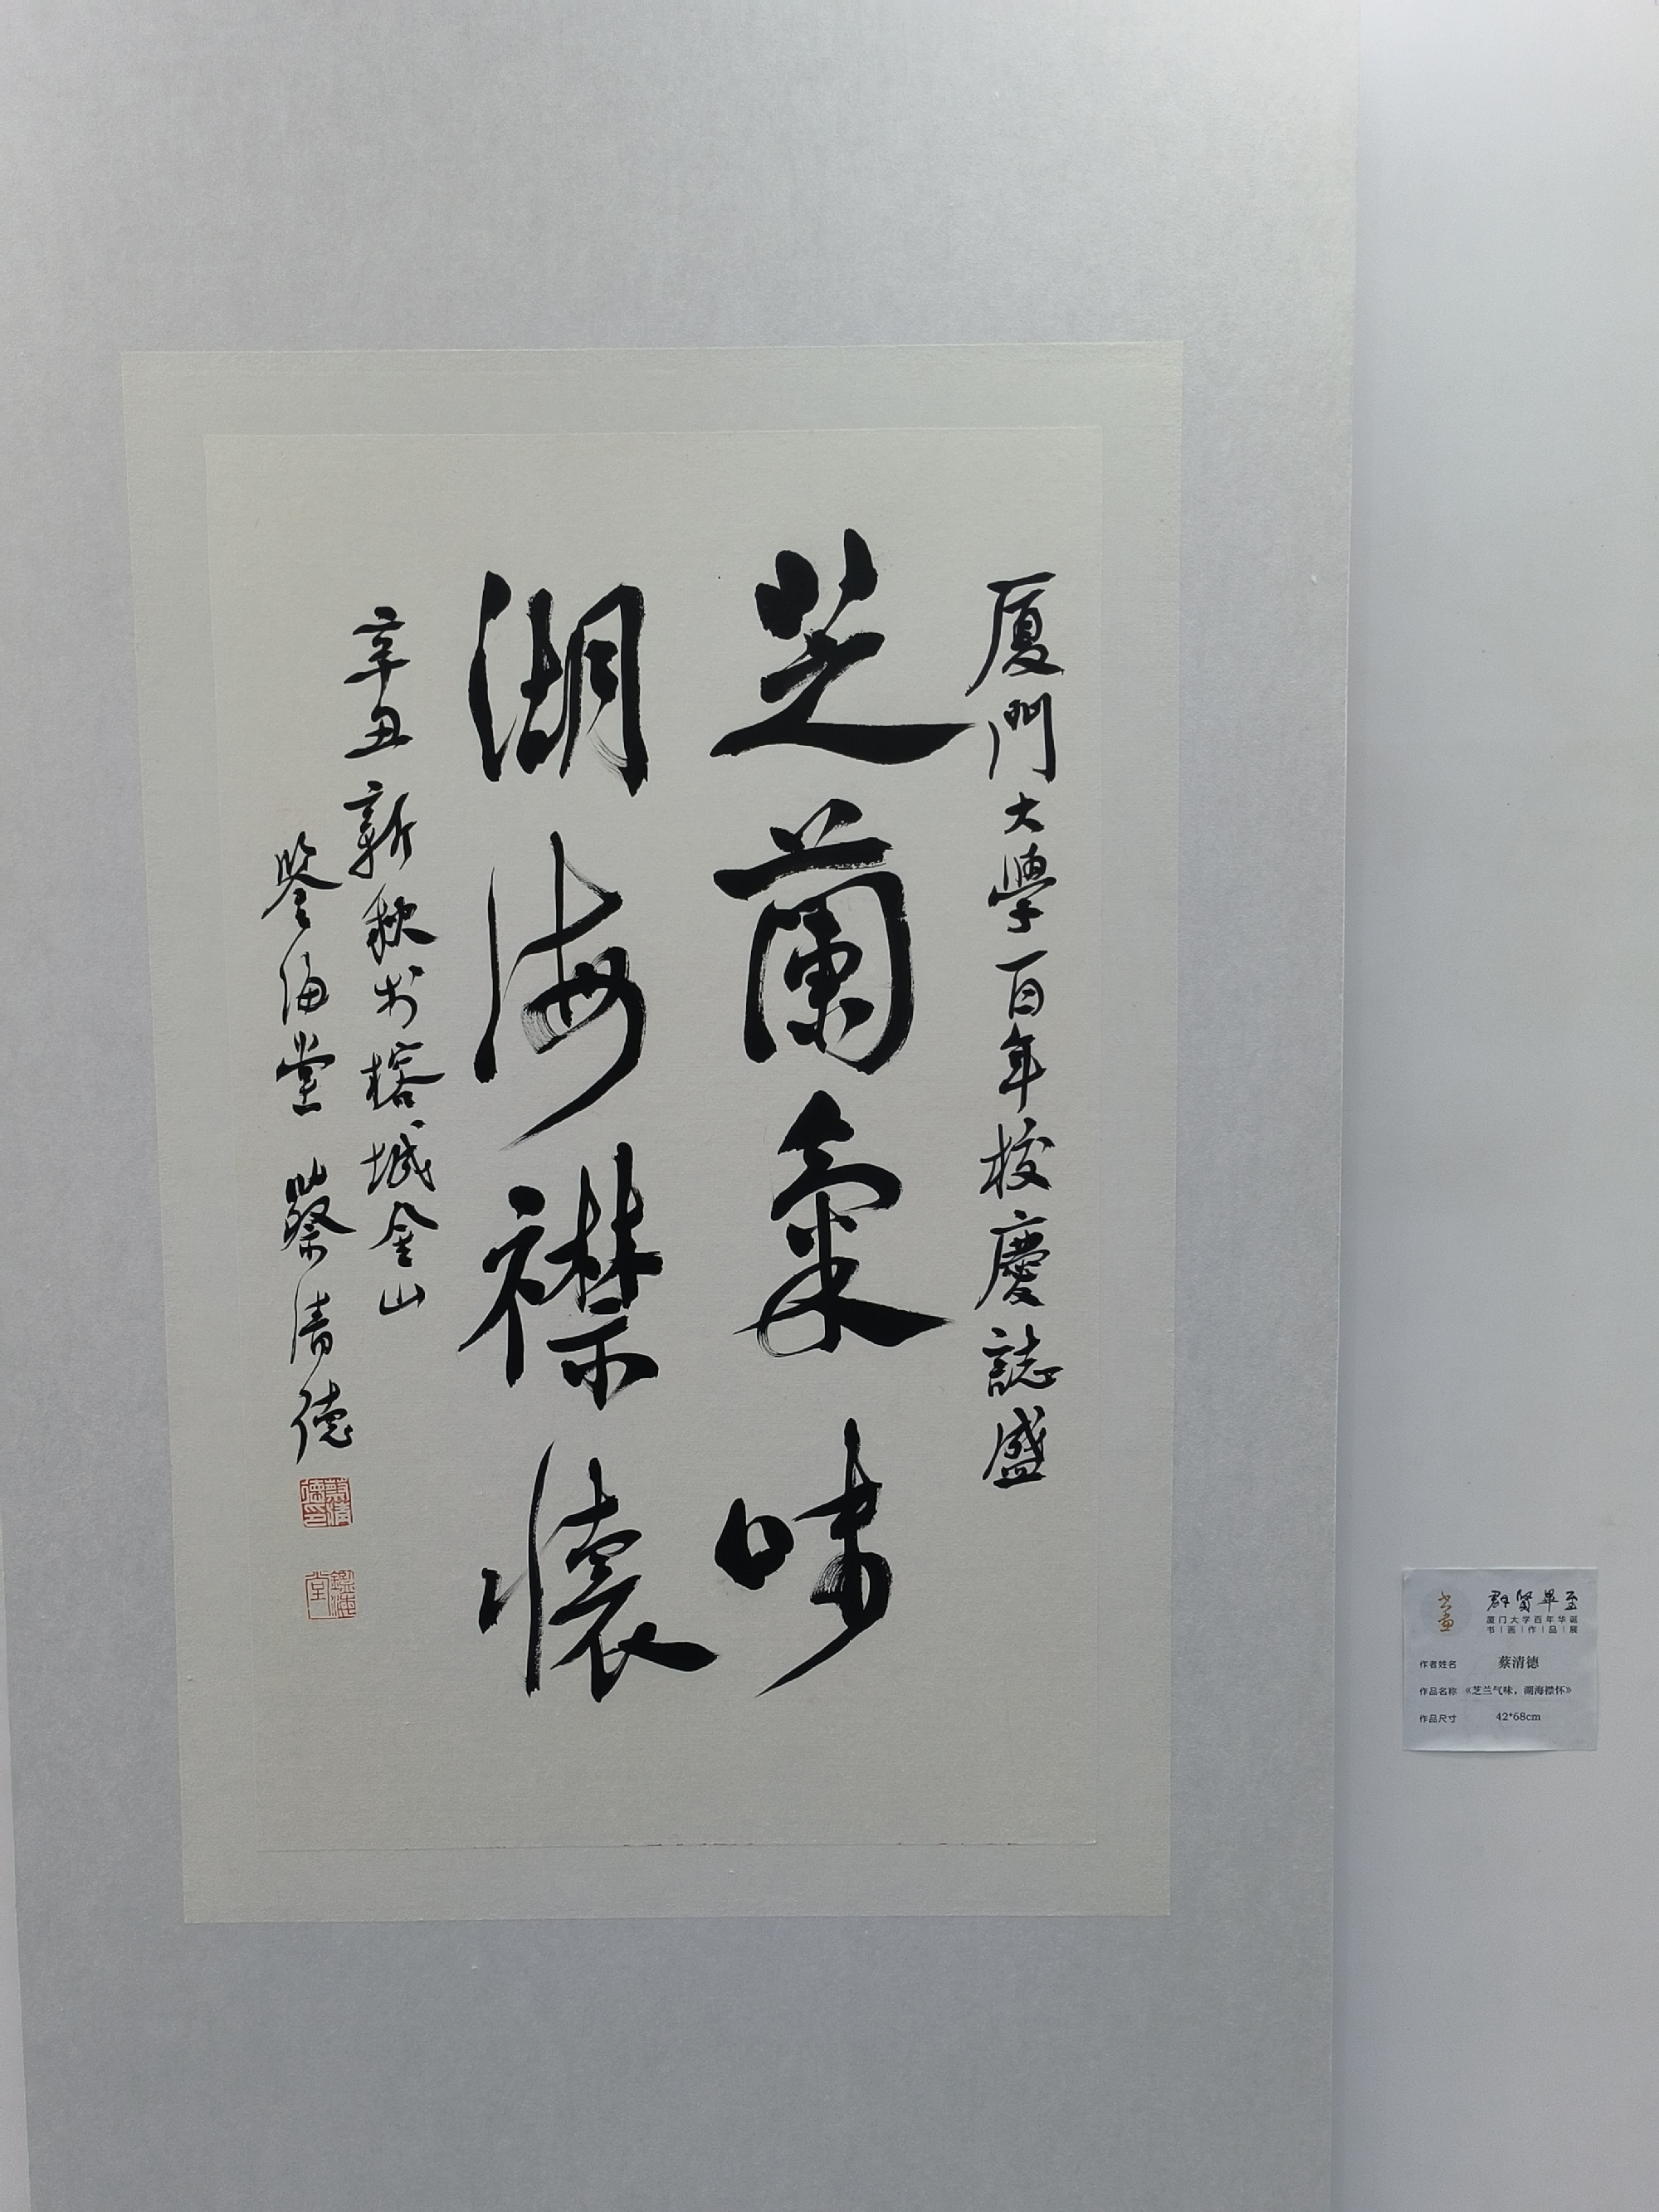 厦門大學百年校慶誌盛
芝蘭氣味
湖海襟懷
辛丑新秋於榕城金山
鑒海堂 蔡清德
蔡清德印
鑑海堂
群賢畢至
厦门大学百年华诞
书|画|作|品|展
作者姓名 蔡清德
作品名称 《芝兰气味，湖海襟怀》
作品尺寸 42*68cm